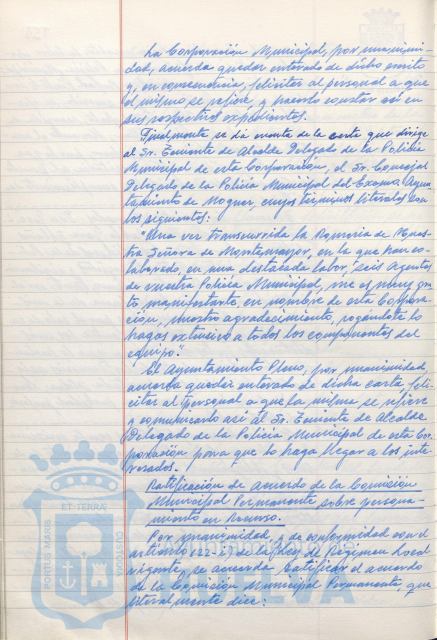 La Corporación Municipal, por unanimi-
dad, acuerda quedar enterado de dicho escrito
y, en consecuencia, felicitar al personal a que
el mismo se refiere, y hacerlo constar así en
sus respectivos expedientes.
Finalmente se dá cuenta de la carta que dirige
al Sr. Teniente de Alcalde Delegado de la Policía
Municipal de esta Corporación, el Sr. Concejal
Delegado de la Policía Municipal del Excmo. Ayun-
tamiento de Moguer, cuyos términos literales son
los siguientes:
"Una vez transcurrida la Romería de Nues-
tra Señora de Montemayor, en la que han co-
laborado, en una destacada labor, seis Agentes
de vuestra Policía Municipal, me es muy gra-
to manifestarte en nombre de esta Corpora-
ción, nuestro agradecimiento, rogándote lo
hagas extensivo a todos los componentes del
equipo".
El Ayuntamiento Pleno, por unanimidad,
acuerda quedar enterado de dicha carta, feli-
citar al personal a que la misma se refiere
y comunicarlo así al Sr. Teniente de Alcalde
Delegado de la Policía Municipal de esta Cor-
poración para que lo haga llegar a los inte-
resados.
Ratificación de acuerdo de la Comisión
Municipal Permanente sobre persona-
miento en Recurso.
Por unanimidad, y de conformidad con el
artículo 122-i) de la Ley de Régimen Local
vigente, se acuerda ratificar el acuerdo
de la Comisión Municipal Permanente, que
literalmente dice:
PORTUS MARIS
ET TERRAE
CUSTODIA
HUELVA